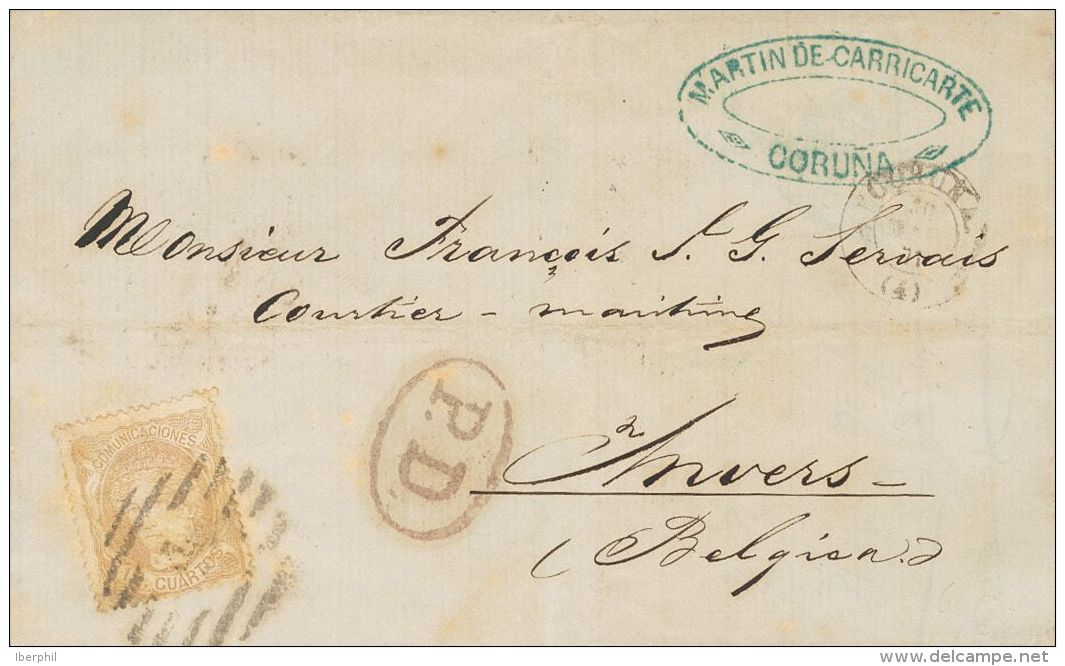 MARTIN DE CARRICARTE
CORUÑA
CORUÑA
30
71
(4)
Monsieur François S. G. Servais
Courtier - maritime
P.D.
Anvers -
(Belgica)
COMUNICACIONES
CUARTOS
Iberphil
www.delcampe.net